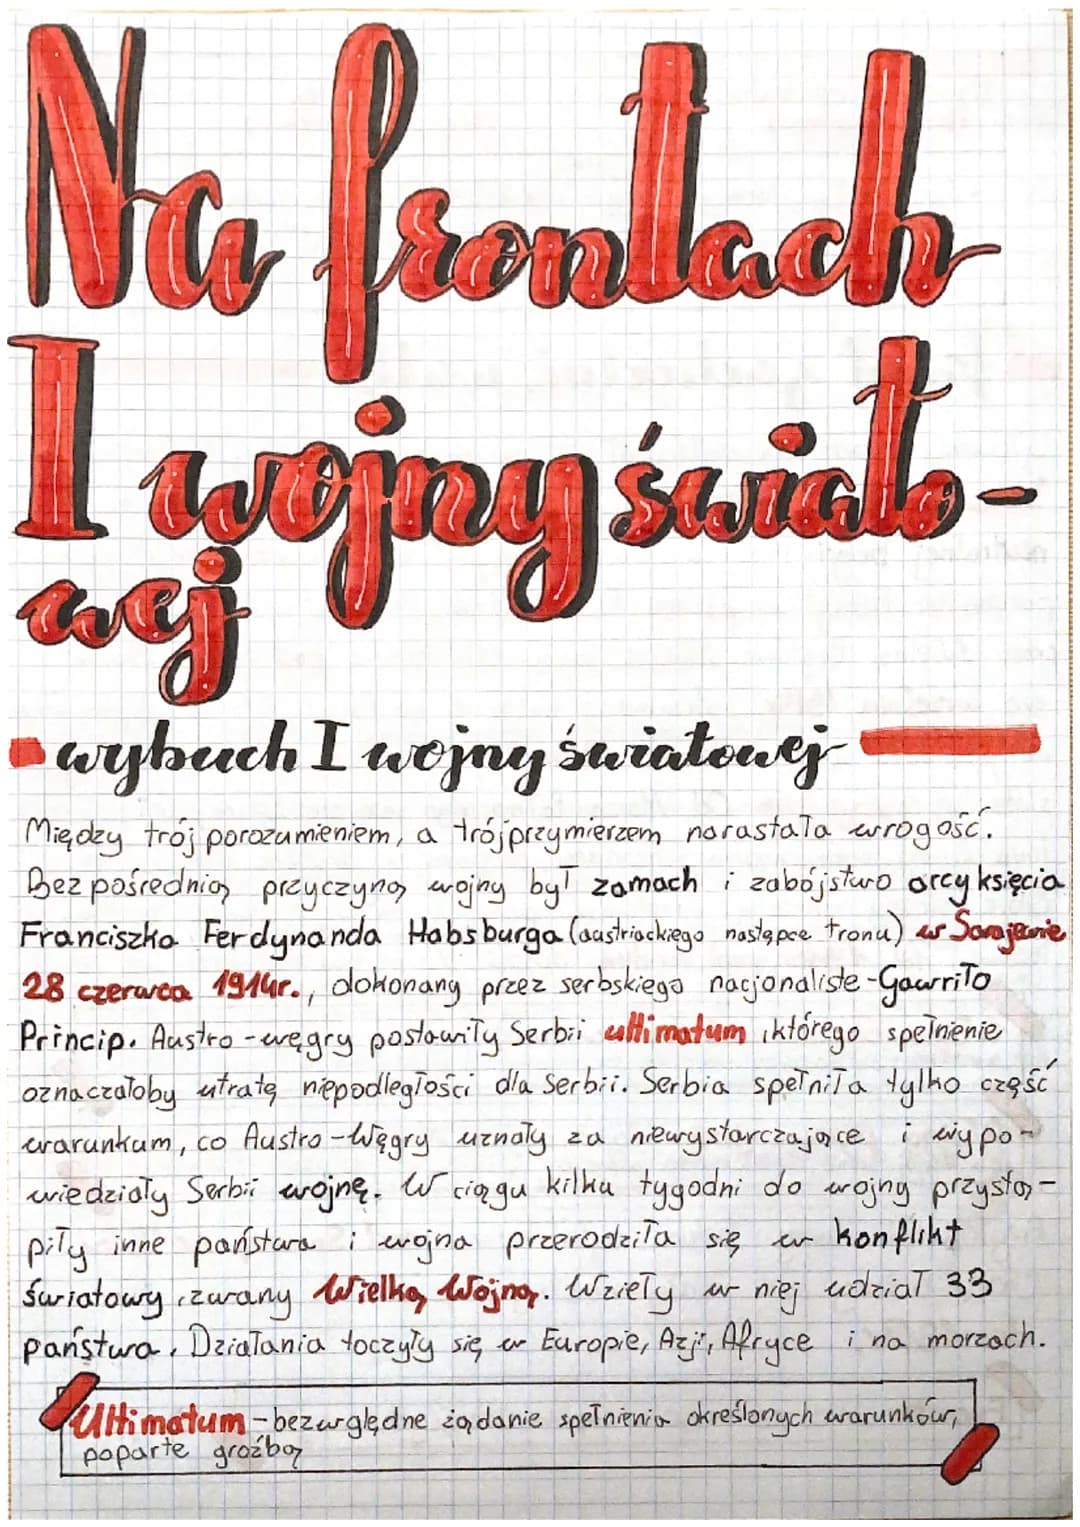 Na frontach
I wojny świato-
wej
wybuch I wojny światowej
Między trójporozumieniem, a trójprzymierzem narastała wrogość.
Bezpośrednią przyczyną wojny był zamach i zabójstwo arcyksięcia
Franciszka Ferdynanda Habsburga (austriackiego następce tronu) w Sarajewie
28 czerwca 1914r., dokonany przez serbskiego nacjonaliste - Gawriło
Princip. Austro-węgry postawiły Serbii ultimatum, którego spełnienie
oznaczałoby utratę niepodległości dla Serbii. Serbia spełniła tylko część
warunkum, co Austro-Węgry uznały za niewystarczające i wypo-
wiedziały Serbii wojnę. W ciągu kilku tygodni do wojny przystą-
piły inne państwa i wojna przerodziła się w konflikt
światowy, zwany Wielką Wojną. Wzieły w niej udział 33
państwa. Działania toczyły się w Europie, Azji, Afryce i na morzach.
Ultimatum - bezwględne żądanie spełnienia określonych warunków,
poparte groźbą